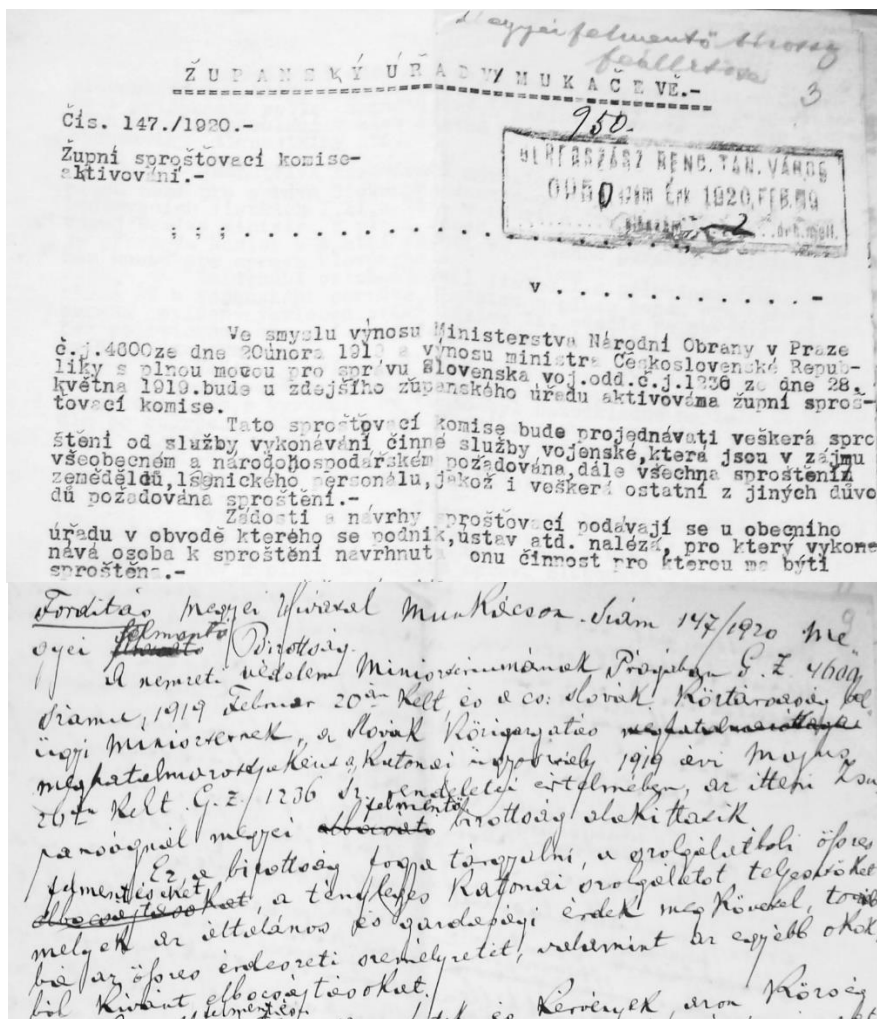 megyei felmentő bizottság
felállítása
3
ŽUPANSKÝ ÚŘAD V MUKAČEVĚ.-
Čís. 147./1920.-
950.
Župní sprošťovací komise-
aktivování.-
BEREGSZÁSZ REND. TAN. VÁROS
0950 szám Érk 1920.FEB.
2 drb. mell.
; ; ; . . . . . . . . . . . . . . . . . .
v . . . . . . . . . . . . -
Ve smyslu výnosu Ministerstva Národní Obrany v Praze
č.j.4600ze dne 20února 1919 a výnosu ministra Československé Repub-
liky s plnou mocou pro správu Slovenska voj.odd.č.j.1236 ze dne 28.
května 1919.bude u zdejšího županského úřadu aktivováma župní sproš-
ťovací komise.
Tato sprošťovací komise bude projednávati veškerá spro
štění od služby vykonávání činné služby vojenské,která jsou v zájmu
všeobecném a národohospodářském požadována,dále všechna sproštění
zemědělců,lesnického personálu,jakož i veškerá ostatní z jiných důvo
dů požadována sproštění.-
Žádosti a návrhy sprošťovací podávají se u obecního
úřadu v obvodě kterého se podnik,ústav atd. nalézá, pro který vykone
nává osoba k sproštění navrhnut onu činnost pro kterou ma býti
sproštěna.-
Fordítás Megyei Hivatal Munkácson. Szám 147/1920 Me
gyei felmentő Bizottság.
A nemzeti védelem Miniszteriumának Prágában G. Z. 4600
számu, 1919 Februar 20án kelt, és a cs: slovak Köztársaság
ügyi Miniszternek, a slovak Közigazgatás
katonai 1919 évi Majus
kelt G. Z. 1236 sz. rendeletei értelmében, az itteni
panságnál megyei felmentő bizottság alakittasik
Ez a bizottság fogja tárgyalni, a szolgálatboli összes
felmentéseket, a tényleges katonai szolgálatot teljesítőket
melyek az általános és gazdasági érdek megkövetel, továb
bá az összes erdészeti személyzetét, valamint az egyébb okok
ból kivánt elbocsajtásokat.
és Kérvények, azon Község